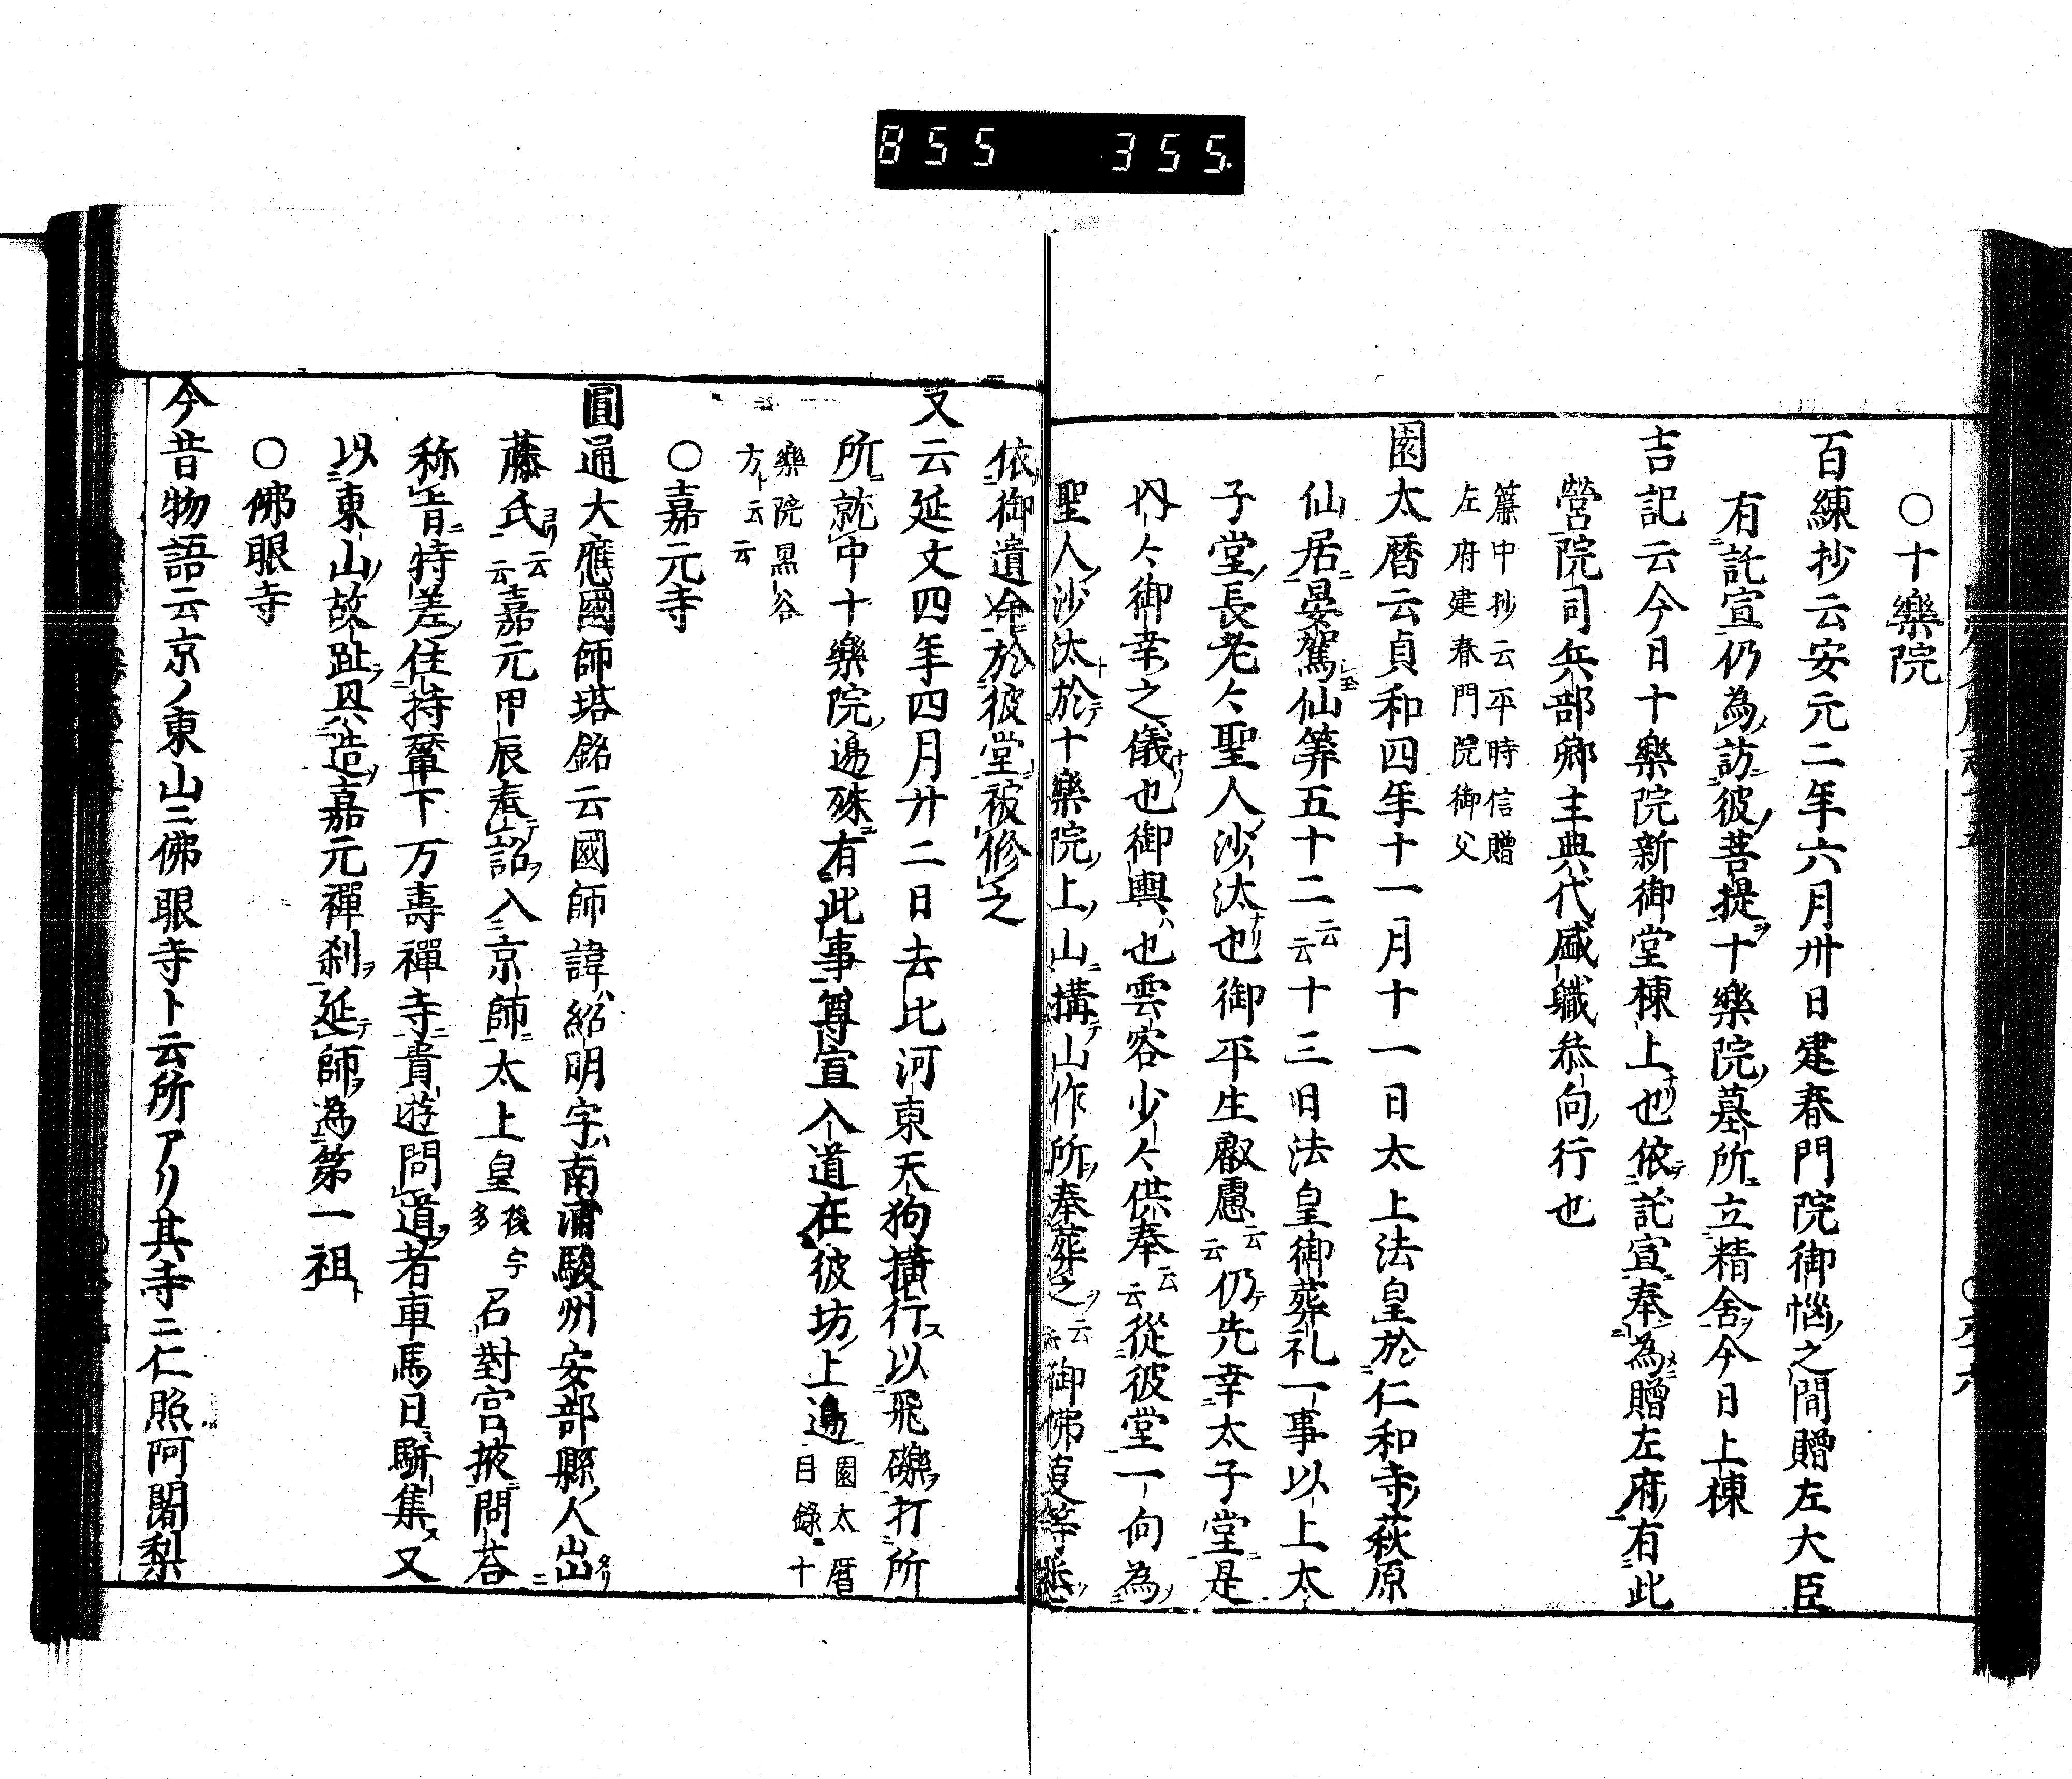 855 355.
○十樂院
百練抄云安元二年六月卅日建春門院御惱之間贈左大臣
有託宣仍為訪彼菩提十樂院墓所立精舍今日上棟
吉記云今日十樂院新御堂棟上也依託宣奉為贈左府有此
營院司兵部卿主典代盛職恭向行也
簾中抄云平時信贈
左府建春門院御父
園太暦云貞和四年十一月十一日太上法皇於仁和寺萩原
仙居晏駕仙筭五十二云云十三日法皇御葬礼一事以上太
子堂長老々聖人沙汰也御平生叡慮云云仍先幸太子堂是
内々御幸之儀也御輿也雲客少々供奉云云從彼堂一向為
聖人沙汰於十樂院上山搆山作所奉葬之云云御佛支等悉
依御遺命於彼堂被修之
又云延文四年四月廿二日去比河東天狗横行以飛礫打所
所就中十樂院邊殊有此事尊宣入道在彼坊上邊園太暦目錄十
樂院黒谷
方ト云云
○嘉元寺
圓通大應國師塔銘云國師諱紹明字南浦駿州安部縣人出
藤氏云云嘉元甲辰奉詔入京師太上皇後宇多召對宮掖問荅
称旨特差住持輦下万壽禪寺貴遊問道者車馬日駢集又
以東山故趾具造嘉元禪刹延師為第一祖
○佛眼寺
今昔物語云京ノ東山ニ佛眼寺ト云所アリ其寺ニ仁照阿闍梨